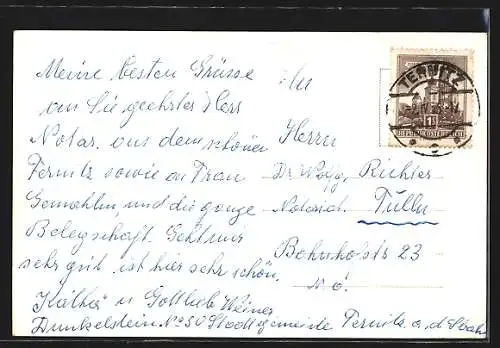 Meine besten Grüsse
an Sie geehrter Herr
Notar, aus dem schönen
Ternitz sowie an Frau
Gemahlin, und die ganze
Belegschaft. Geht mir
sehr gut, ist hier sehr schön.
Käthe u Gottlieb
Dunkelstein No 50 Stadtgemeinde Ternitz a. d. Sbahn
An
Herrn
Dr. Richter
Notariat. Tulln
Bahnhofstr 23
N. Ö.
TERNITZ
REPUBLIK ÖSTERREICH